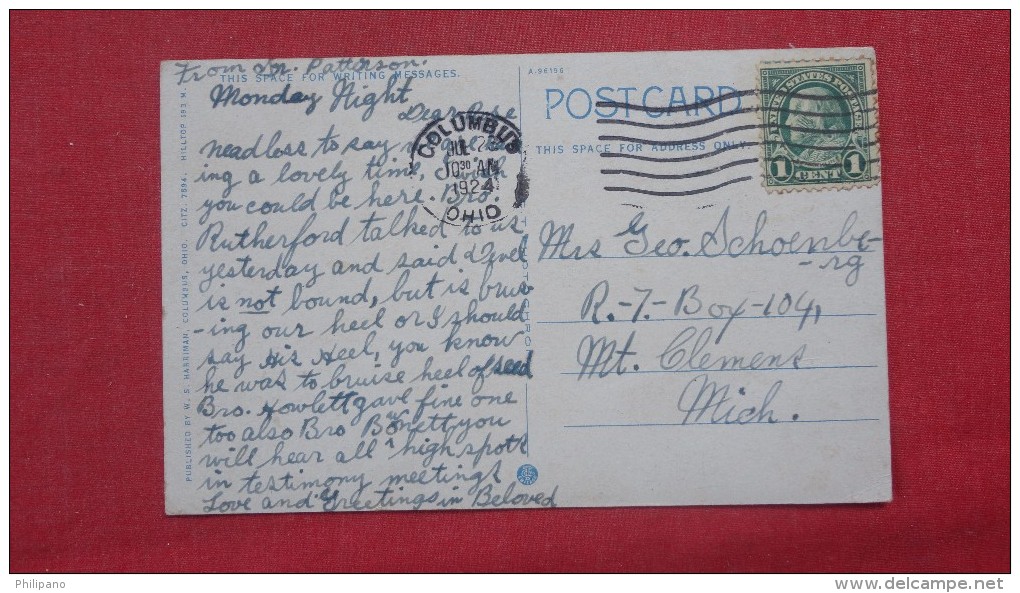 From Mr. Patterson.
THIS SPACE FOR WRITING MESSAGES.
Monday Night
Dear
needless to say
ing a lovely time, Wish
you could be here. Bro.
Rutherford talked to us
yesterday and said Devel
is not bound, but is bruis
-ing our heel or I should
say His Heel, you know
he was to bruise heel of seed
Bro. Howlett gave fine one
too also Bro you
will hear all high spots
in testimony meetings
Love and Greetings in Beloved
PUBLISHED BY W. S. HARRIMAN, COLUMBUS, OHIO. CITZ. 7594. HILLTOP 183 M.
COLUMBUS
JUL 2
10 30 AM
1924
OHIO
A-96156
POST CARD
THIS SPACE FOR ADDRESS ONLY.
UNITED STATES POSTAGE
1 CENT 1
Mrs Geo. Schoenbe-
-rg
R.-7-Box-104,
Mt. Clemens
Mich.
Philipano
www.delcampe.net